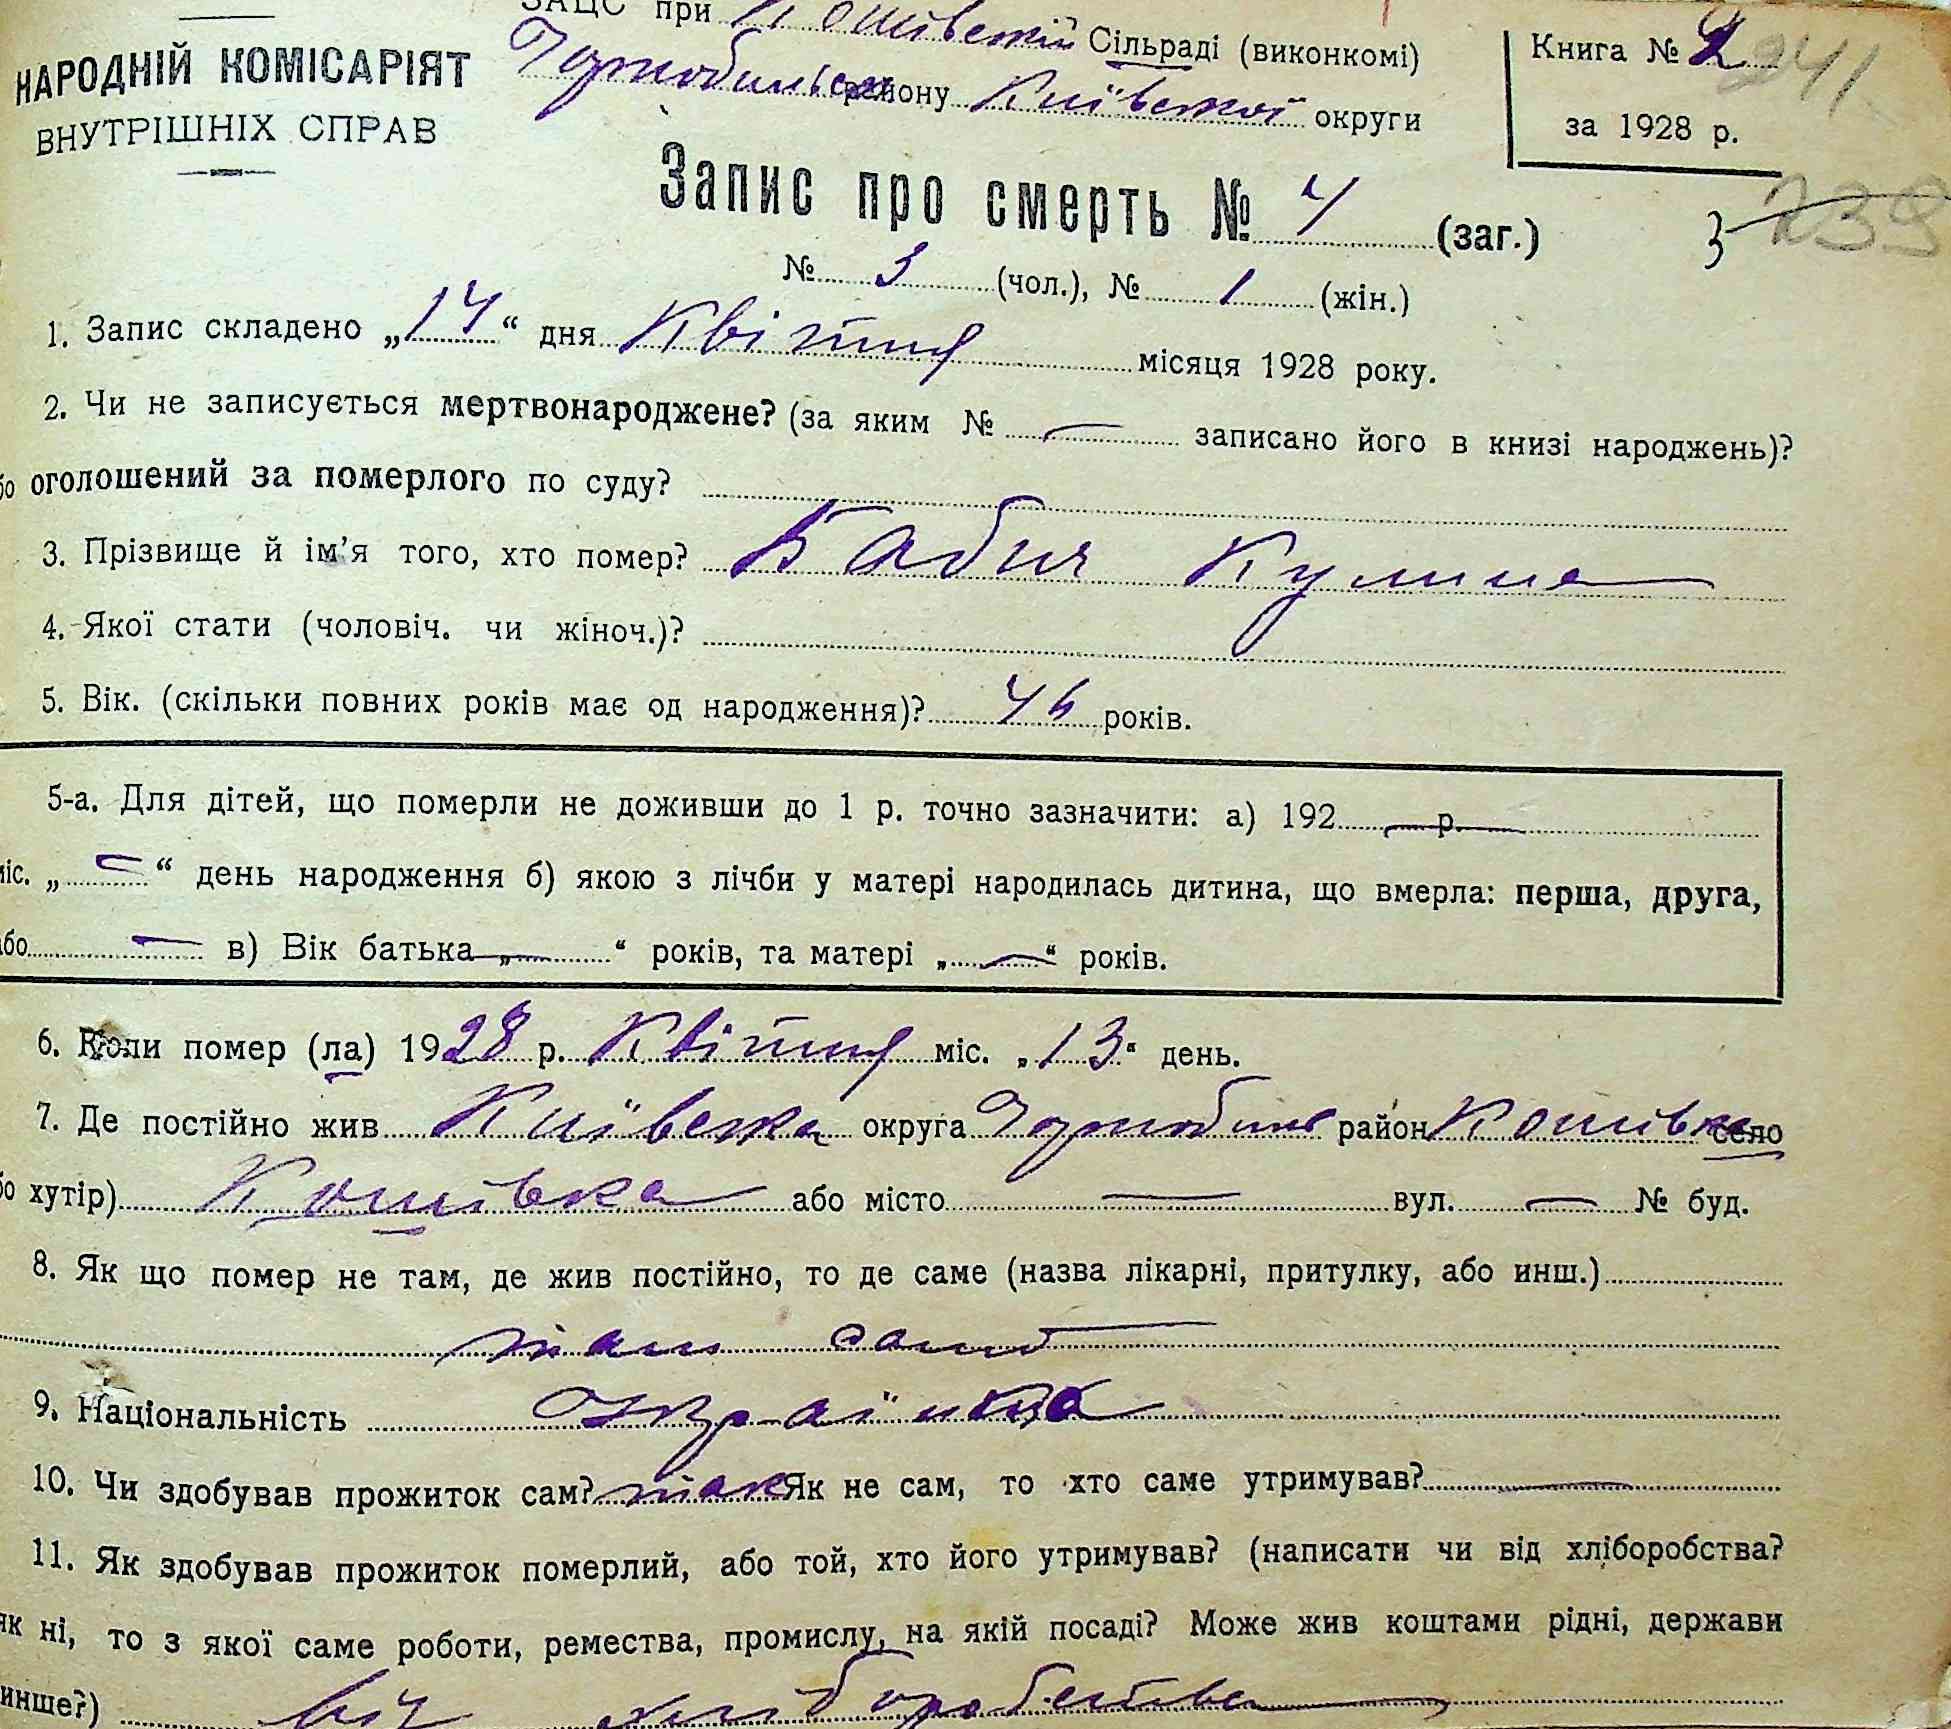 ЗАЦС при Кошівській Сільраді (виконкомі)
НАРОДНІЙ КОМІСАРІЯТ
ВНУТРІШНІХ СПРАВ
Чорнобильськ району Київської округи
Книга № 2 241
за 1928 р.
Запис про смерть № 4 (заг.)
239
№ 3 (чол.), № 1 (жін.)
1. Запис складено „14“ дня Квітня місяця 1928 року.
2. Чи не записується мертвонароджене? (за яким № — записано його в книзі народжень)?
бо оголошений за померлого по суду?
3. Прізвище й ім’я того, хто помер? Бабич Кулина
4. Якої стати (чоловіч. чи жіноч.)?
5. Вік. (скільки повних років має од народження)? років.
5-а. Для дітей, що померли не доживши до 1 р. точно зазначити: а) 192 — р. —
міс. „—“ день народження б) якою з лічби у матері народилась дитина, що вмерла: перша, друга,
або — в) Вік батька „—“ років, та матері „—“ років.
6. Коли помер (ла) 1928 р. Квітня міс. „13“ день.
7. Де постійно жив Київська округа Чорнобиль район Кошівка село
бо хутір) Кошівка або місто — вул. — № буд.
8. Як що помер не там, де жив постійно, то де саме (назва лікарні, притулку, або инш.)
там само
9. Національність Українка
10. Чи здобував прожиток сам? так Як не сам, то хто саме утримував? —
11. Як здобував прожиток померлий, або той, хто його утримував? (написати чи від хліборобства?
як ні, то з якої саме роботи, ремества, промислу, на якій посаді? Може жив коштами рідні, держави
инше?) від хліборобства